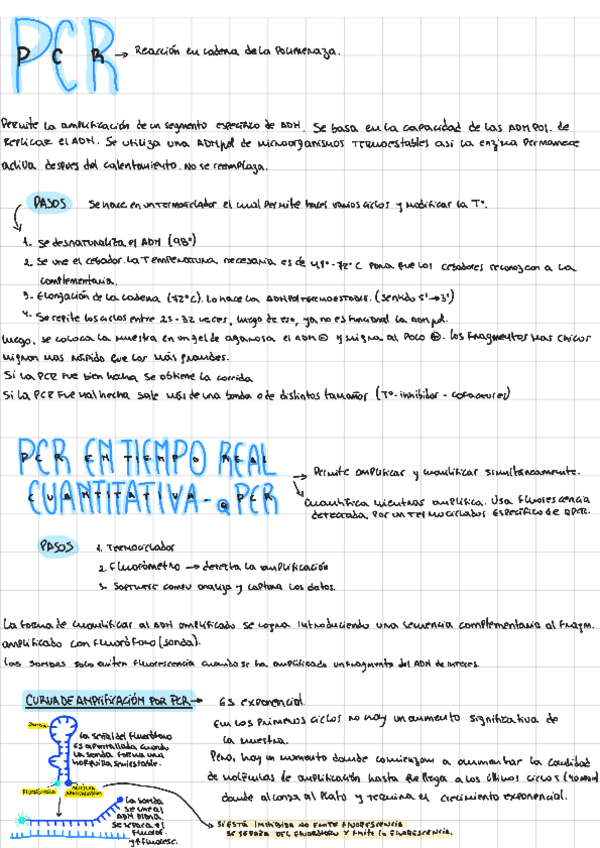 PCR → Reacción en cadena de la Polimeraza.
Permite la amplificación de un segmento específico de ADN. Se basa en la capacidad de las ADN Pol. de
Replicar el ADN. Se utiliza una ADN pol de microorganismos Termoestables asi la enzima permanece
activa despues del calentamiento. No se reemplaza.
PASOS Se hace en un Termociclador el cual permite hacer varios ciclos y modificar la T°.
1. Se desnaturaliza el ADN (98°)
2. Se une el cebador. La Temperatura necesaria es de -72°C para que los cebadores reconozcan a la
complementaria.
3. Elongación de la cadena (72°C). Lo hace la ADN Pol TERMOESTABLE. (sentido 5'→3')
4. Se repite los ciclos entre 25-32 veces, luego de eso, ya no es funcional la ADN pol.
Luego, se coloca la muestra en un gel de agarosa. el ADN ⊖ y migra al Polo ⊕. Los fragmentos mas chicos
migran mas rápido que los más grandes.
Si la PCR fue bien hecha se obtiene la corrida
Si la PCR fue mal hecha sale más de una banda o de distintos tamaños (T°- inhibidor - cofactores)
PCR EN TIEMPO REAL
CUANTITATIVA - qPCR
→ Permite amplificar y cuantificar simultáneamente.
Cuantifica mientras amplifica. Usa fluorescencia
detectada por un Termociclador específico de qPCR.
PASOS 1. Termociclador
2. Fluorómetro → detecta la amplificación
3. Software analiza y captura los datos.
La forma de cuantificar al ADN amplificado se logra introduciendo una secuencia complementaria al fragm.
amplificado con fluoróforo (sonda).
Las sondas solo emiten fluorescencia cuando se ha amplificado un fragmento del ADN de interes.
CURVA DE AMPLIFICACIÓN POR PCR → Es exponencial
En los primeros ciclos no hay un aumento significativo de
la muestra.
Pero, hay un momento donde comienzan a aumentar la cantidad
de moléculas de amplificación hasta que llega a los últimos ciclos
donde alcanza el plato y termina el crecimiento exponencial.
Sonda
La señal del fluoróforo
es apantallada cuando
la sonda forma una
horquilla
Fluoróforo
La sonda
se une al
ADN blanco,
se separa el
fluorof.
y fluoresc.
→ Si está inhibida no emite fluorescencia
se separa del fluoróforo y emite la fluorescencia.